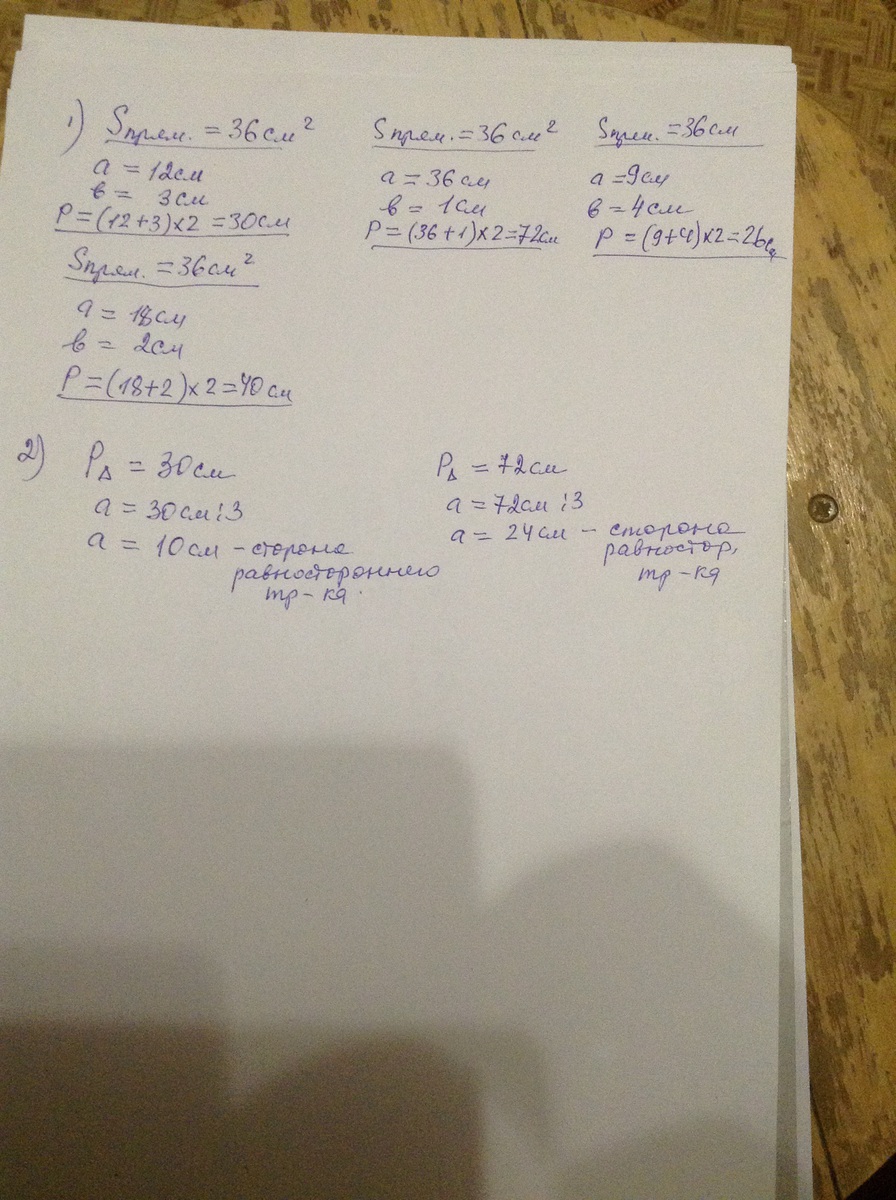 1) Sпрям. = 36 см²
a = 12 см
в = 3 см
P = (12+3)×2 = 30 см
Sпрям. = 36 см²
a = 36 см
в = 1 см
P = (36+1)×2=72см
Sпрям. = 36 см
a = 9 см
в = 4 см
P = (9+4)×2=26см
Sпрям. = 36 см²
a = 18 см
в = 2 см
P = (18+2)×2=40 см
2) P△ = 30 см
a = 30 см : 3
a = 10 см – сторона
равностороннего
тр-ка.
P△ = 72 см
a = 72 см : 3
a = 24 см – сторона
равностор.
тр-ка